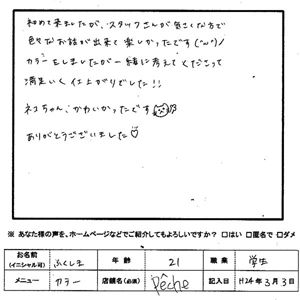 初めて来ましたが、スタッフさんが気さくな方で
色々なお話が出来て楽しかったです(^ω^)/
カラーをしましたが一緒に考えてくださって
満足いく仕上がりでした!!
ネコちゃん、かわいかったです
ありがとうございました♡
※ あなた様の声を、ホームページなどでご紹介してもよろしいですか? □はい □匿名で □ダメ
お名前 (イニシャル可) ふくしま 年齢 21 職業 学生
メニュー カラー 店舗名(必須) Pêche 記入日 H24年3月3日